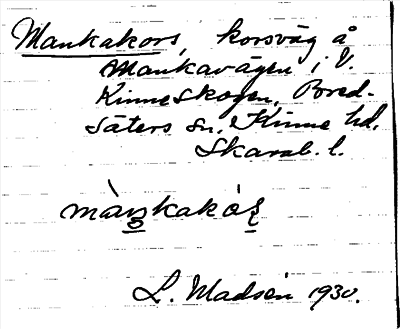 Mankakors, korsväg å
Mankavägen i V.
Kinneskogen, Bred-
säters sn, Kinne hd,
Skarab. l.
L. Madsén 1930.